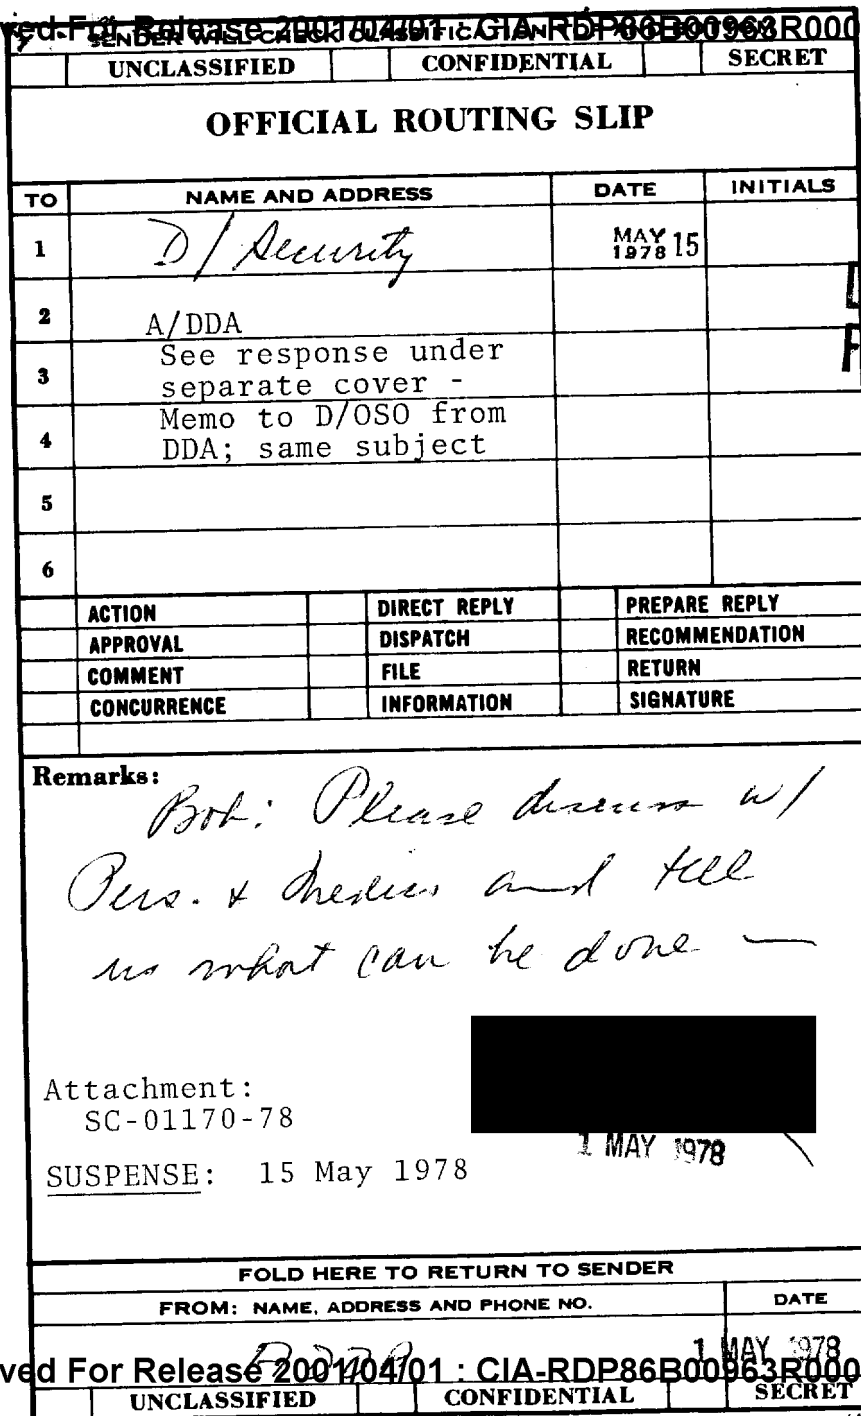 ved For Release 2001/04/01 : CIA-RDP86B00963R000
SENDER WILL CHECK CLASSIFICATION TOP AND BOTTOM
UNCLASSIFIED CONFIDENTIAL SECRET
OFFICIAL ROUTING SLIP
TO NAME AND ADDRESS DATE INITIALS
1 D/Security MAY 1978 15
2 A/DDA
See response under
3 separate cover -
Memo to D/OSO from
4 DDA; same subject
5
6
ACTION DIRECT REPLY PREPARE REPLY
APPROVAL DISPATCH RECOMMENDATION
COMMENT FILE RETURN
CONCURRENCE INFORMATION SIGNATURE
Remarks:
Bob: Please discuss w/
Pers. & Medics and tell
us what can be done —
Attachment:
SC-01170-78
1 MAY 1978
SUSPENSE: 15 May 1978
FOLD HERE TO RETURN TO SENDER
FROM: NAME, ADDRESS AND PHONE NO. DATE
1 MAY 1978
ved For Release 2001/04/01 : CIA-RDP86B00963R000
UNCLASSIFIED CONFIDENTIAL SECRET